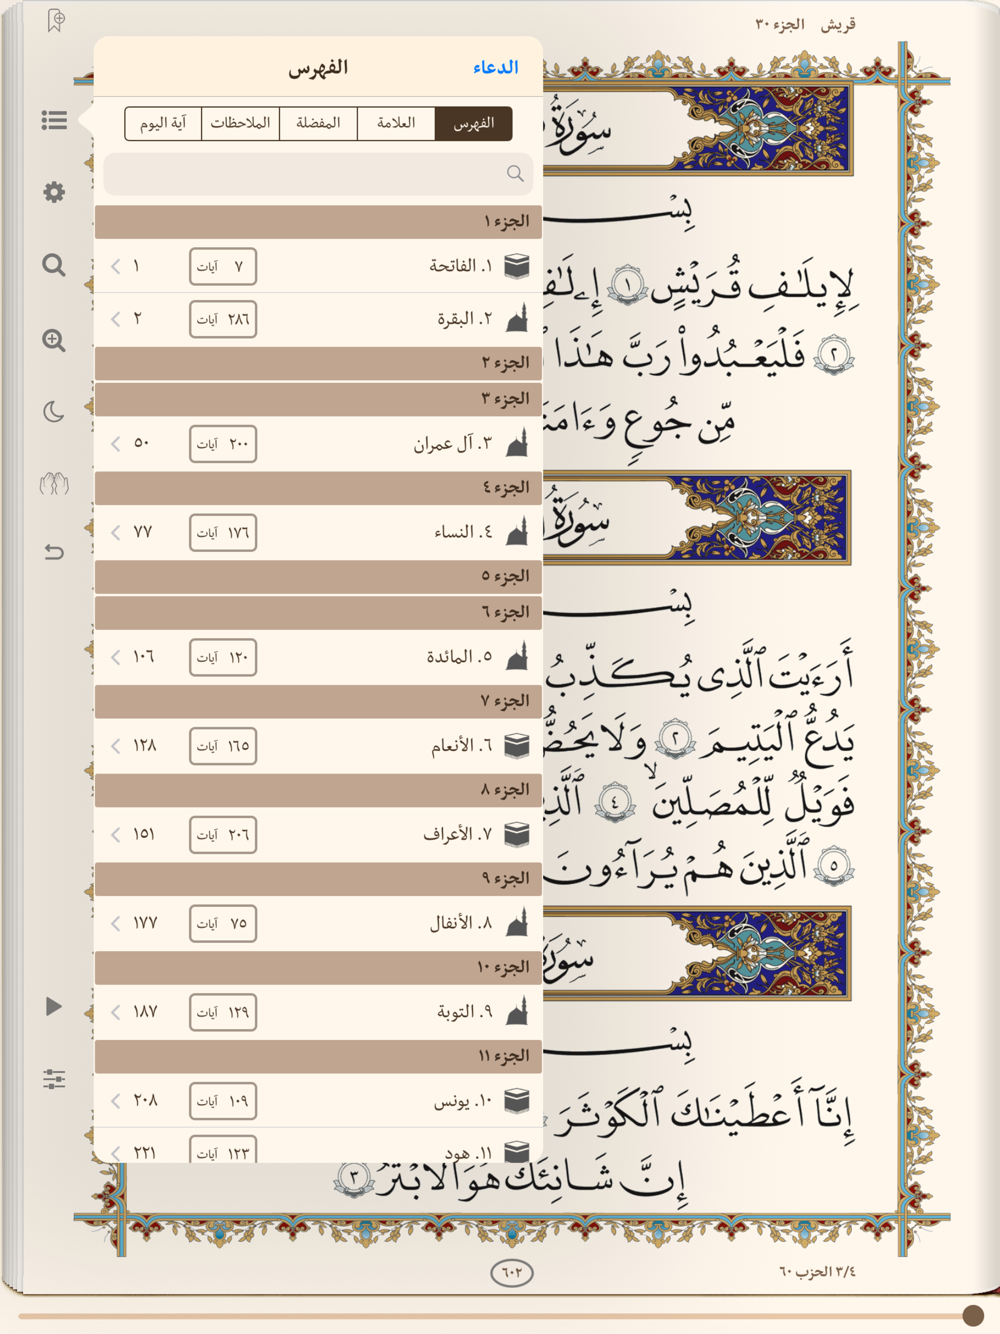 قريش الجزء ٣٠
الدعاء
الفهرس
الفهرس
العلامة
المفضلة
الملاحظات
آية اليوم
الجزء ١
١. الفاتحة ٧ آيات ١
٢. البقرة ٢٨٦ آيات ٢
الجزء ٢
الجزء ٣
٣. آل عمران ٢٠٠ آيات ٥٠
الجزء ٤
٤. النساء ١٧٦ آيات ٧٧
الجزء ٥
الجزء ٦
٥. المائدة ١٢٠ آيات ١٠٦
الجزء ٧
٦. الأنعام ١٦٥ آيات ١٢٨
الجزء ٨
٧. الأعراف ٢٠٦ آيات ١٥١
الجزء ٩
٨. الأنفال ٧٥ آيات ١٧٧
الجزء ١٠
٩. التوبة ١٢٩ آيات ١٨٧
الجزء ١١
١٠. يونس ١٠٩ آيات ٢٠٨
١١. هود ١٢٣ آيات ٢٢١
سُورَةُ
بِسْ
لِإِيلَـٰفِ قُرَيْشٍ ١ إِۦلَـٰفِ
٢ فَلْيَعْبُدُوا۟ رَبَّ هَـٰذَا
مِّن جُوعٍ وَءَامَنَ
سُورَةُ
بِسْ
أَرَءَيْتَ ٱلَّذِى يُكَذِّبُ
يَدُعُّ ٱلْيَتِيمَ ٢ وَلَا يَحُضُّ
فَوَيْلٌ لِّلْمُصَلِّينَ ٤ ٱلَّذِ
٥ ٱلَّذِينَ هُمْ يُرَآءُونَ
سُورَةُ
بِسْ
إِنَّآ أَعْطَيْنَـٰكَ ٱلْكَوْثَرَ
إِنَّ شَانِئَكَ هُوَ ٱلْأَبْتَرُ ٣
٣/٤ الحزب ٦٠
٦٠٢